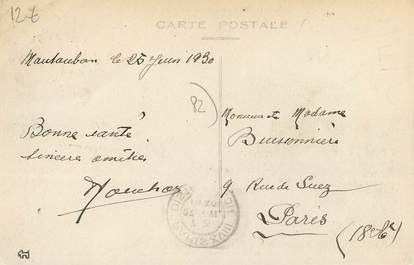 12€
CARTE POSTALE
Montauban le 25 Juin 1930
82
Bonne santé
Sincère amitiés
Monsieur et Madame
Buissonnière
9 Rue de Suez
Paris
(18e)